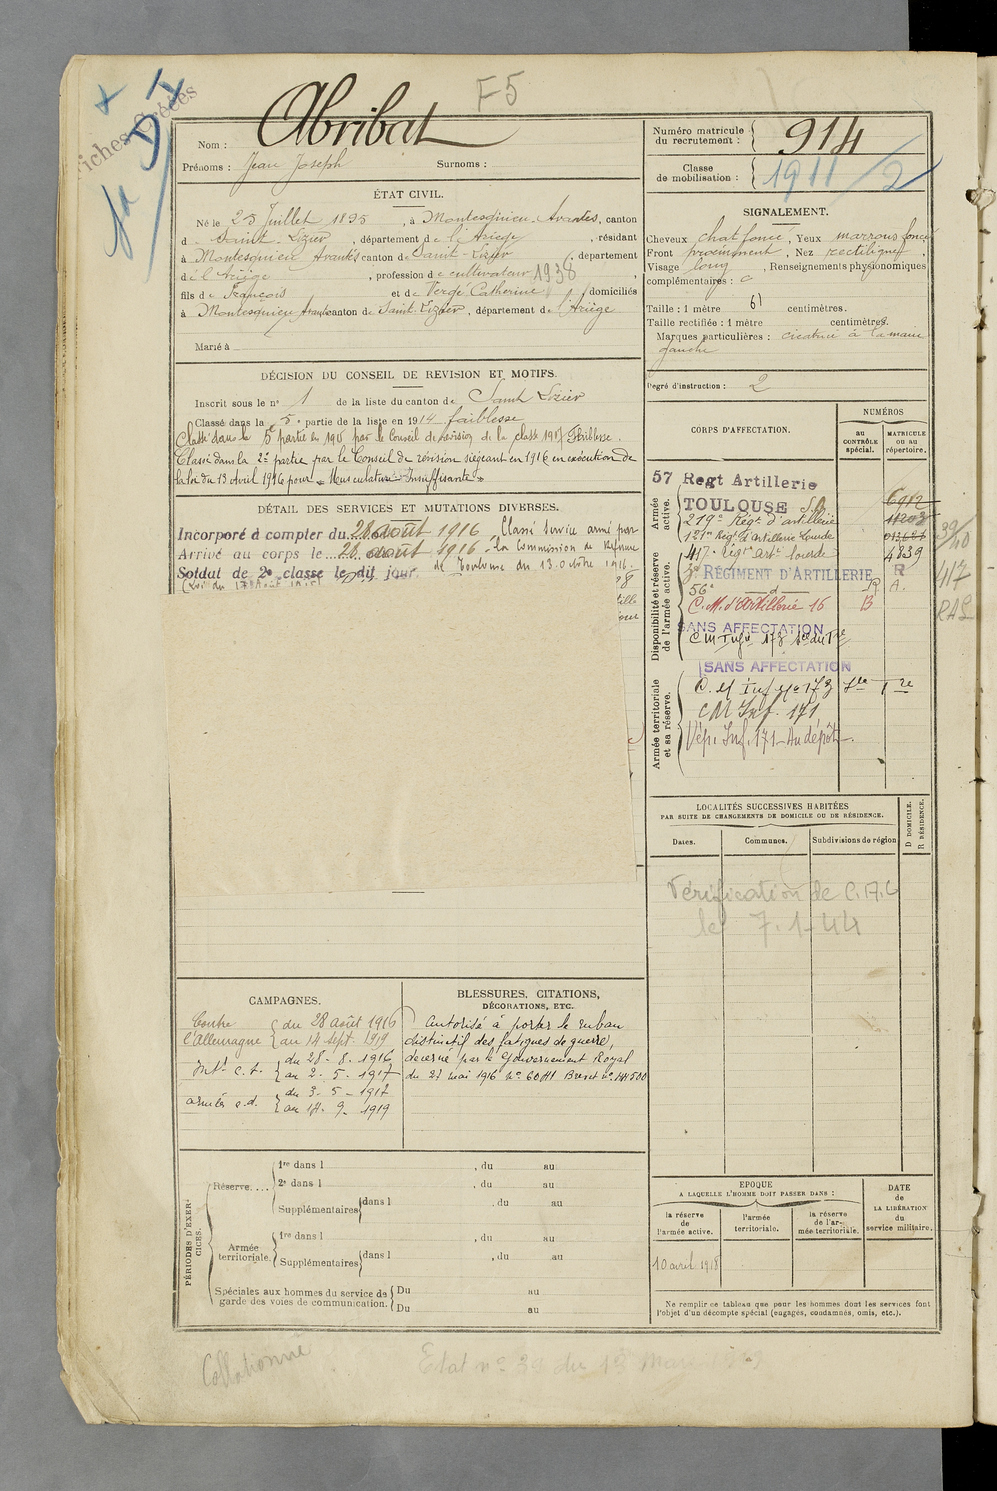 F5
Fiches Créées
Nom : Abribat
Prénoms : Jean Joseph Surnoms :
Numéro matricule du recrutement : 914
Classe de mobilisation : 1911/2
ÉTAT CIVIL.
Né le 25 Juillet 1895, à Montesquieu-Avantès, canton
d Saint-Lizier, département de l'Ariège, résidant
à Montesquieu Avantès canton de Saint-Lizier, département
de l'Ariège, profession de cultivateur 1938
fils de François et de Vergé Catherine domiciliés
à Montesquieu Avantès canton de Saint-Lizier, département de l'Ariège
Marié à
SIGNALEMENT.
Cheveux chat foncé, Yeux marrons foncé
Front proéminent, Nez rectiligne,
Visage long, Renseignements physionomiques
complémentaires :
Taille : 1 mètre 61 centimètres.
Taille rectifiée : 1 mètre centimètres.
Marques particulières : cicatrice à la main
gauche
Degré d'instruction : 2
DÉCISION DU CONSEIL DE REVISION ET MOTIFS.
Inscrit sous le n° 1 de la liste du canton de Saint Lizier
Classé dans la 5e partie de la liste en 1914 faiblesse
Classé dans la 5 partie en 1915 par le Conseil de révision de la classe 1917 Faiblesse.
Classé dans la 2e partie par le Conseil de révision siégeant en 1916 en exécution de
la loi du 13 avril 1916 pour « Musculature Insuffisante »
DÉTAIL DES SERVICES ET MUTATIONS DIVERSES.
Incorporé à compter du 28 août 1916 Classé service armé par
Arrivé au corps le 28 août 1916 la Commission de Réforme
Soldat de 2e classe le dit jour. de Toulouse du 13 octobre 1916.
CORPS D'AFFECTATION.
NUMÉROS
au CONTRÔLE spécial.
MATRICULE ou au répertoire.
Armée active.
57 Regt Artillerie
TOULOUSE 6912
219e Régt d'artillerie
121e Régt d'Artillerie Lourde
417e Régt art. lourde 4839
Disponibilité et réserve de l'armée active.
3e RÉGIMENT D'ARTILLERIE R
56e d R. A.
C. M. d'Artillerie 16 B
SANS AFFECTATION
SANS AFFECTATION
Armée territoriale et sa réserve.
C. M Inf no 173
CM Inf. 171
Dép. Inf. 171 - Au dépôt.
39/40
417
RAL
LOCALITÉS SUCCESSIVES HABITÉES
PAR SUITE DE CHANGEMENTS DE DOMICILE OU DE RÉSIDENCE.
Dates. Communes. Subdivisions de région
D DOMICILE. R RÉSIDENCE.
Vérification de C.A.C
le 7.1.44
CAMPAGNES.
Contre l'Allemagne du 28 août 1916
au 14 sept. 1919
Intr c. d. du 28-8-1916
au 2-5-1917
armées c.d. du 3-5-1917
au 14-9-1919
BLESSURES, CITATIONS,
DÉCORATIONS, ETC.
Autorisé à porter le ruban
distinctif des fatigues de guerre,
décerné par le Gouvernement Royal
du 21 mai 1916 no 6041 Brevet no 141500
PÉRIODES D'EXERCICES.
Réserve....
1re dans l , du au
2e dans l , du au
Supplémentaires dans l , du au
Armée territoriale.
1re dans l , du au
Supplémentaires dans l , du au
Spéciales aux hommes du service de Du au
garde des voies de communication. Du au
EPOQUE
A LAQUELLE L'HOMME DOIT PASSER DANS :
la réserve de l'armée active.
l'armée territoriale.
la réserve de l'armée territoriale.
DATE de LA LIBÉRATION du service militaire.
10 avril 1918
Ne remplir ce tableau que pour les hommes dont les services font
l'objet d'un décompte spécial (engagés, condamnés, omis, etc.).
Collationné
Etat no 32 du 18 Mars